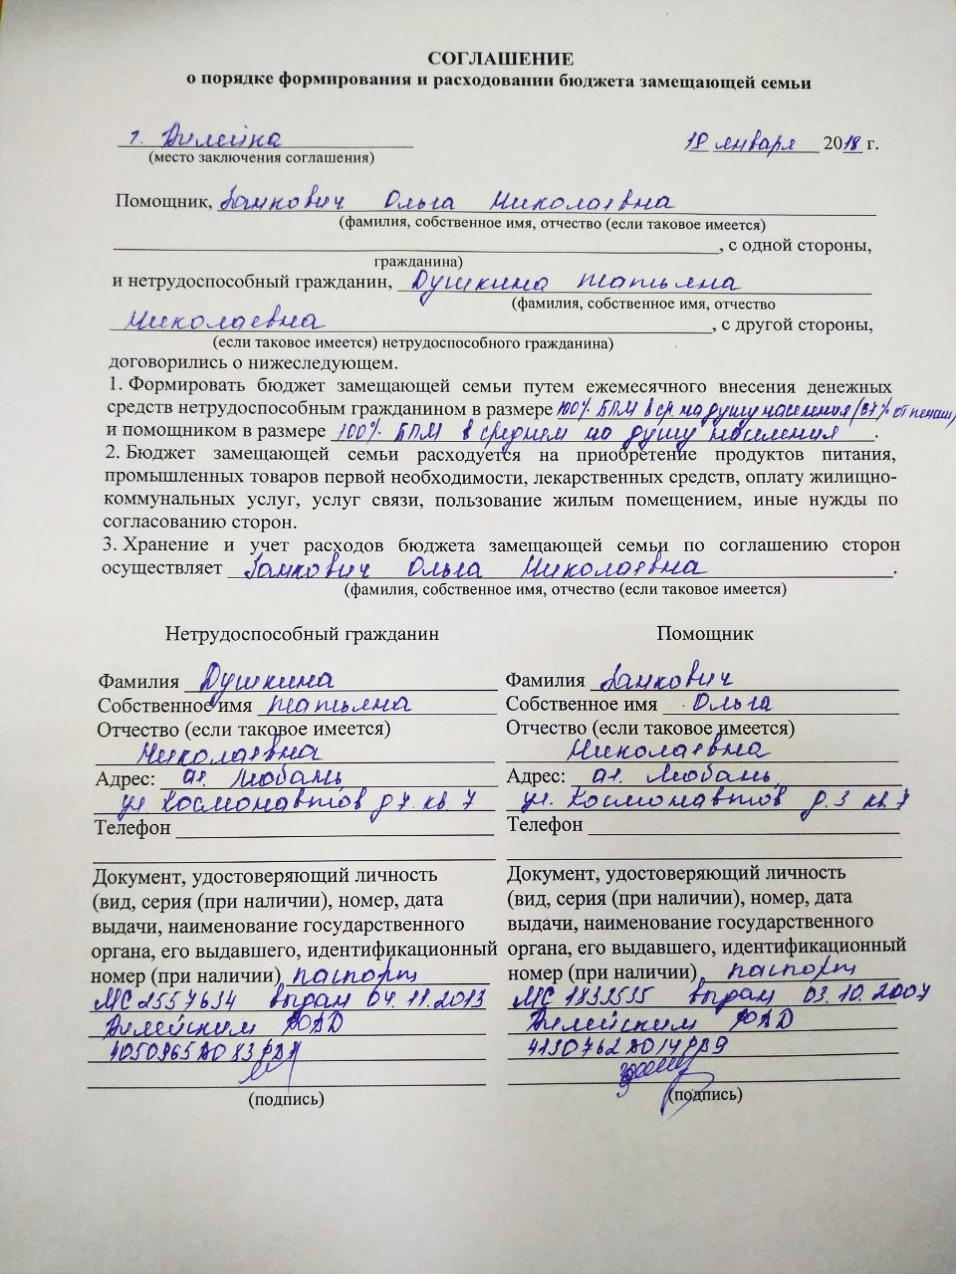 СОГЛАШЕНИЕ
о порядке формирования и расходовании бюджета замещающей семьи
г. Вилейка 18 января 2018 г.
(место заключения соглашения)
Помощник, Ольга Николаевна
(фамилия, собственное имя, отчество (если таковое имеется)
, с одной стороны,
гражданина)
и нетрудоспособный гражданин, Душкина Татьяна
(фамилия, собственное имя, отчество
Николаевна , с другой стороны,
(если таковое имеется) нетрудоспособного гражданина)
договорились о нижеследующем.
1. Формировать бюджет замещающей семьи путем ежемесячного внесения денежных
средств нетрудоспособным гражданином в размере 100% БПМ в ср. на душу населения (87% от пенсии)
и помощником в размере 100% БПМ в среднем на душу населения.
2. Бюджет замещающей семьи расходуется на приобретение продуктов питания,
промышленных товаров первой необходимости, лекарственных средств, оплату жилищно-
коммунальных услуг, услуг связи, пользование жилым помещением, иные нужды по
согласованию сторон.
3. Хранение и учет расходов бюджета замещающей семьи по соглашению сторон
осуществляет Ольга Николаевна.
(фамилия, собственное имя, отчество (если таковое имеется)
Нетрудоспособный гражданин
Фамилия Душкина
Собственное имя Татьяна
Отчество (если таковое имеется)
Николаевна
Адрес: аг. Любань,
ул Космонавтов д 7. кв. 7
Телефон
Документ, удостоверяющий личность
(вид, серия (при наличии), номер, дата
выдачи, наименование государственного
органа, его выдавшего, идентификационный
номер (при наличии) паспорт
МС 2557634 выдан 04.11.2013
Вилейским РОВД
(подпись)
Помощник
Фамилия
Собственное имя Ольга
Отчество (если таковое имеется)
Николаевна
Адрес: аг. Любань,
ул. Космонавтов д. 3 кв. 7
Телефон
Документ, удостоверяющий личность
(вид, серия (при наличии), номер, дата
выдачи, наименование государственного
органа, его выдавшего, идентификационный
номер (при наличии) паспорт
МС выдан 03.10.2007
Вилейским РОВД
(подпись)